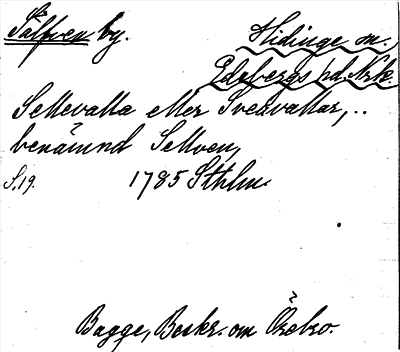 Sälfven by.
Hidinge sn.
Edsbergs hd. Nrk.
Sellevalla eller Sveavallar,..
benämnd Sellven,
S.19. 1785 Sthlm.
Bagge, Beskr. om Örebro.